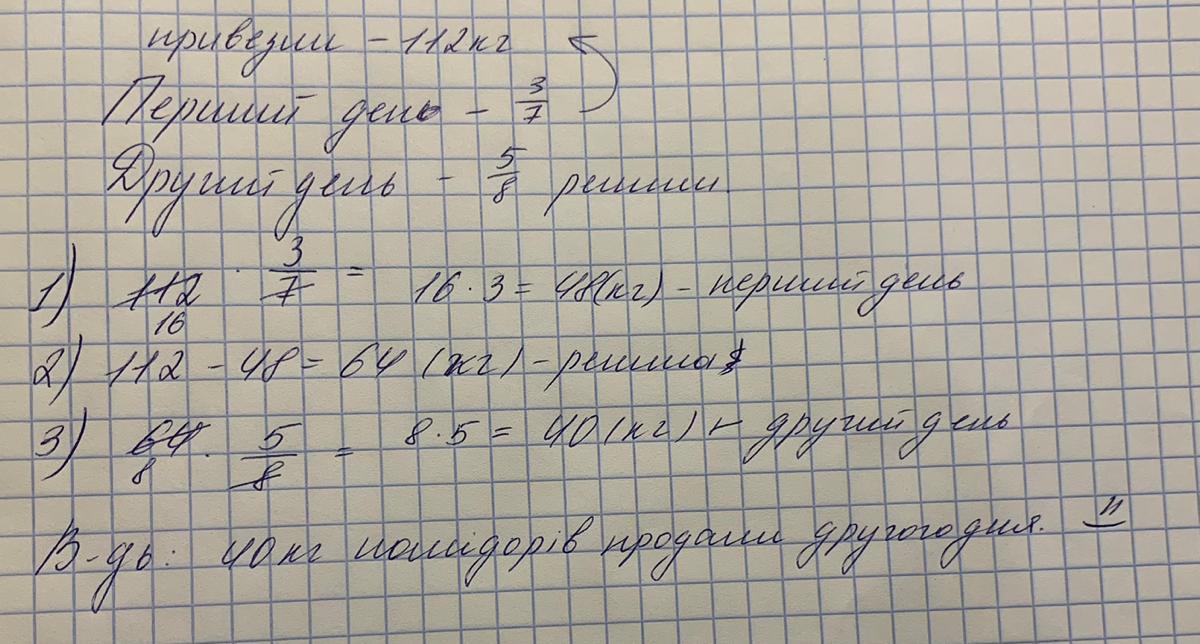 привезли - 112кг
Перший день - 3/7
Другий день - 5/8 решти.
1) 112 · 3/7 = 16 · 3 = 48(кг) - перший день
16
2) 112 - 48 = 64 (кг) - решта
3) 64 · 5/8 = 8 · 5 = 40 (кг) - другий день
8
В-дь: 40кг помідорів продали другого дня.